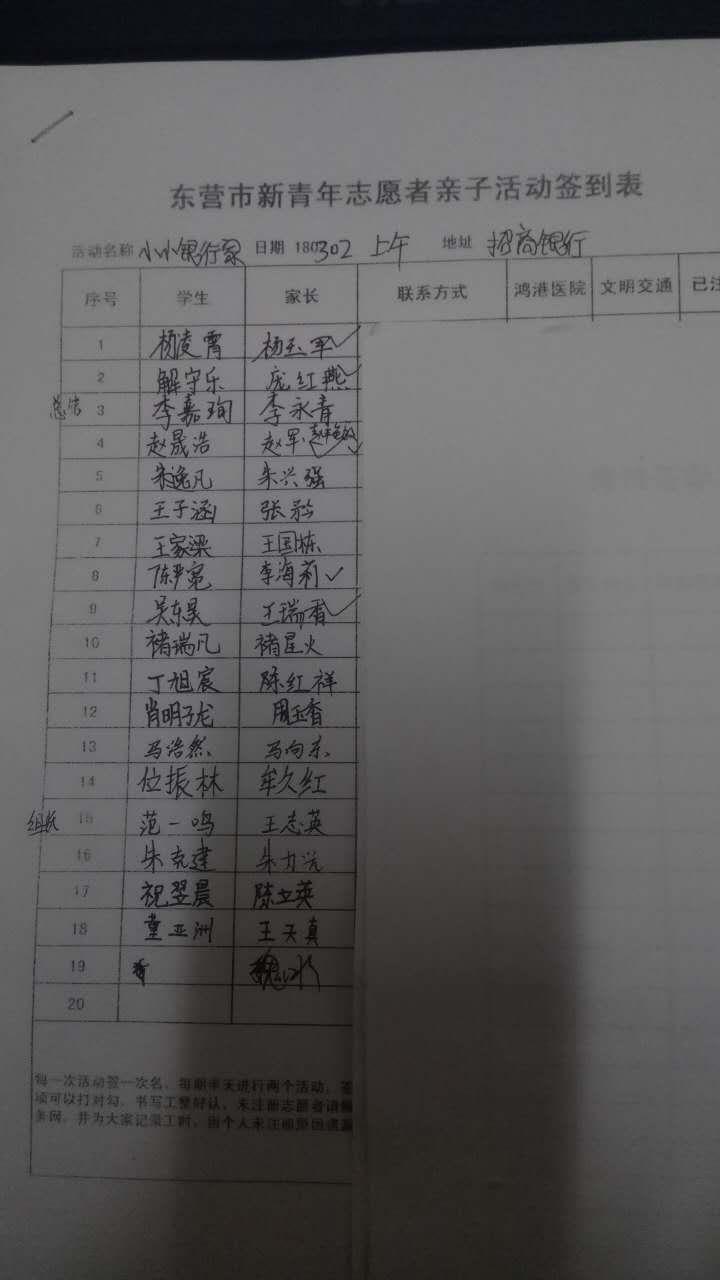 东营市新青年志愿者亲子活动签到表
活动名称 小小银行家 日期 180302 上午 地址 招商银行
序号 学生 家长 联系方式 鸿港医院 文明交通 已注
1 杨凌霄 杨玉军 ✓
2 解守乐 庞红燕 ✓
总结 3 李嘉珣 李永青
4 赵晟浩 赵军 ✓
5 朱逸凡 朱兴强
6 王子涵 张
7 王家梁 王国栋
8 陈尹宽 李海莉 ✓
9 吴东昊 王瑞香 ✓
10 褚瑞凡 褚星火
11 丁旭宸 陈红祥
12 肖明子龙 周玉香
13 马浩然 马向东
14 位振林 牟久红
组长 15 范一鸣 王志英
16 朱克建 朱力
17 祝翌晨 陈立英
18 董亚洲 王天真
19 魏
20
每一次活动签一次名，每期半天进行两个活动，签
项可以打对勾，书写工整好认，未注册志愿者请
务网，并为大家记录工时，因个人未注册原因遗漏